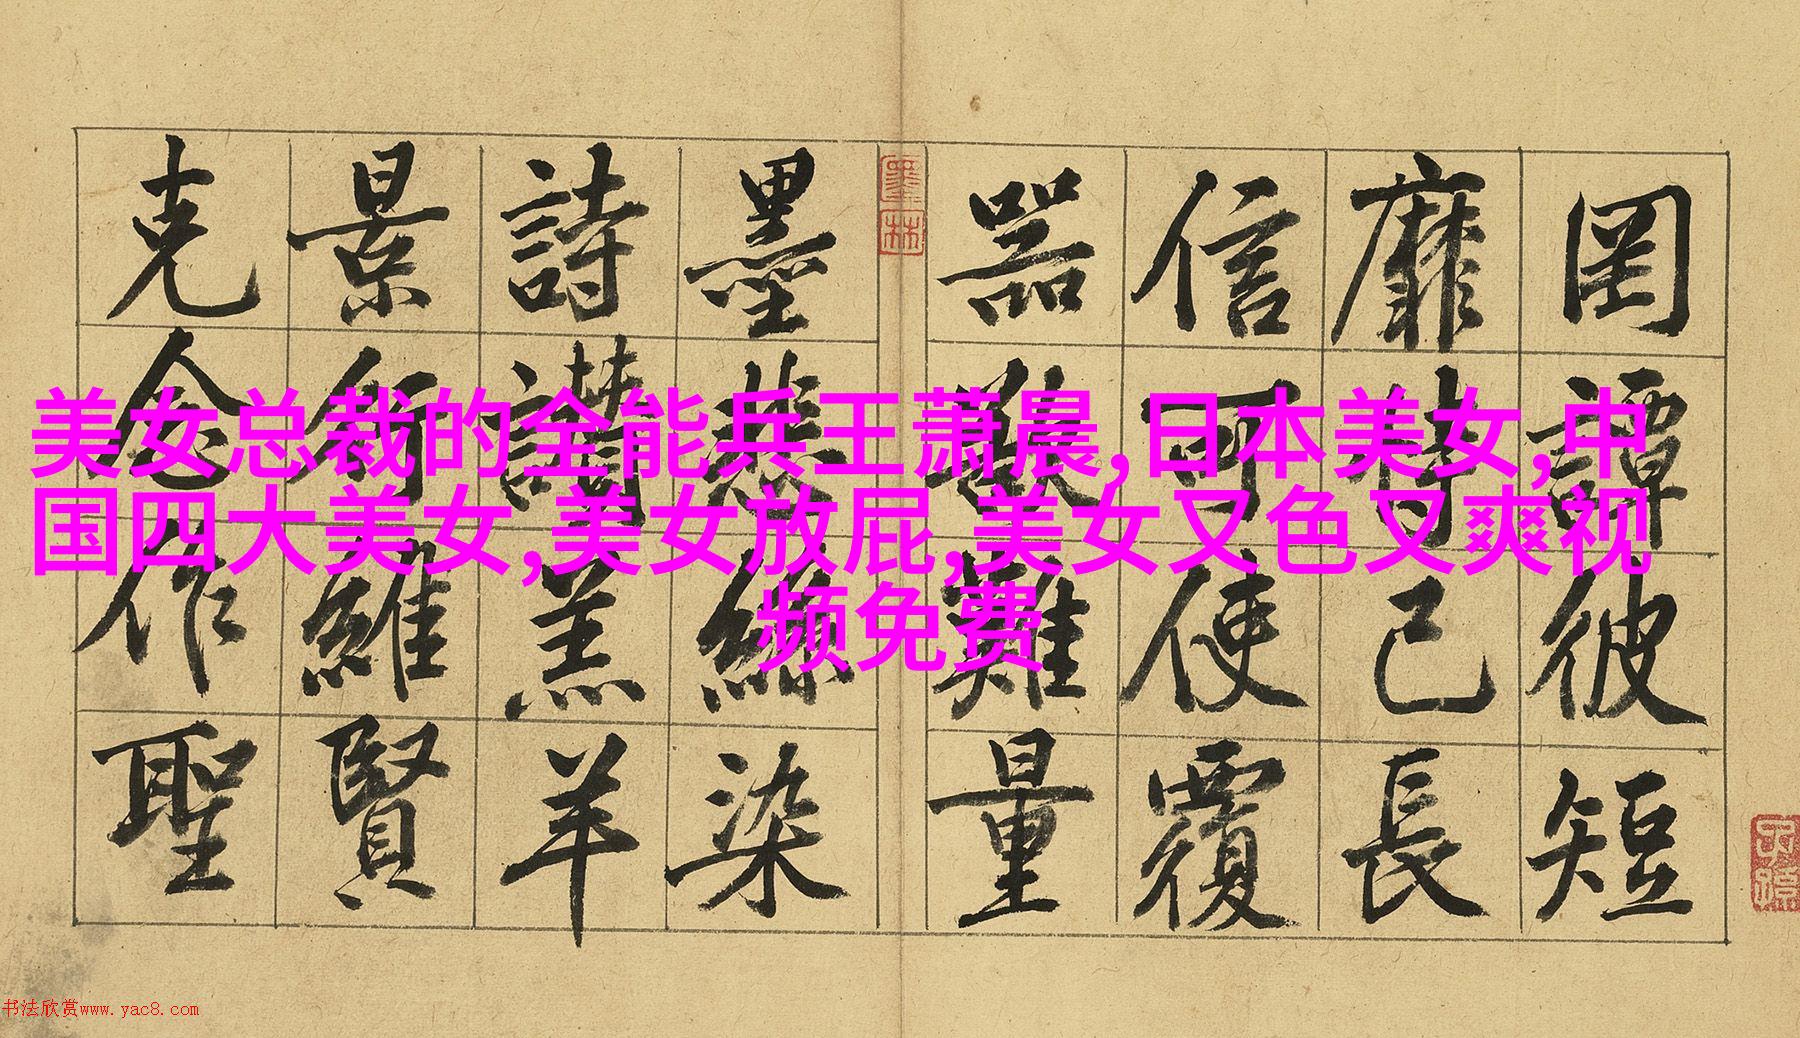 罔譚彼短
靡恃己長
信可使覆
器難量
墨悲絲染
詩讚羔羊
景行維賢
克念作聖
墨林
子孫
美女总裁的全能兵王萧晨,日本美女,中
国四大美女,美女放屁,美女又色又爽视
频免费
书法欣赏www.yac8.com